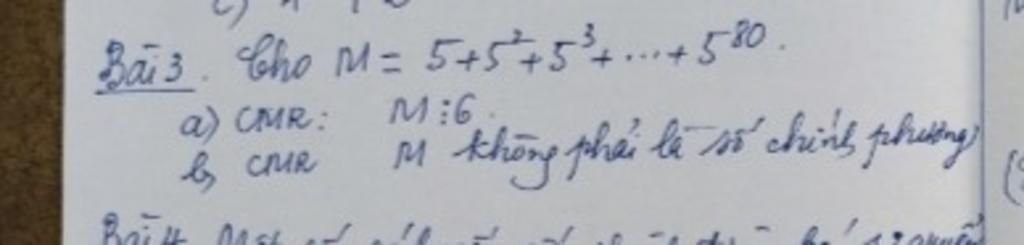 c)
Bài 3. Cho M = 5+5²+5³+...+5⁸⁰.
a) CMR: M⋮6.
b) CMR M không phải là số chính phương
Bài 4.